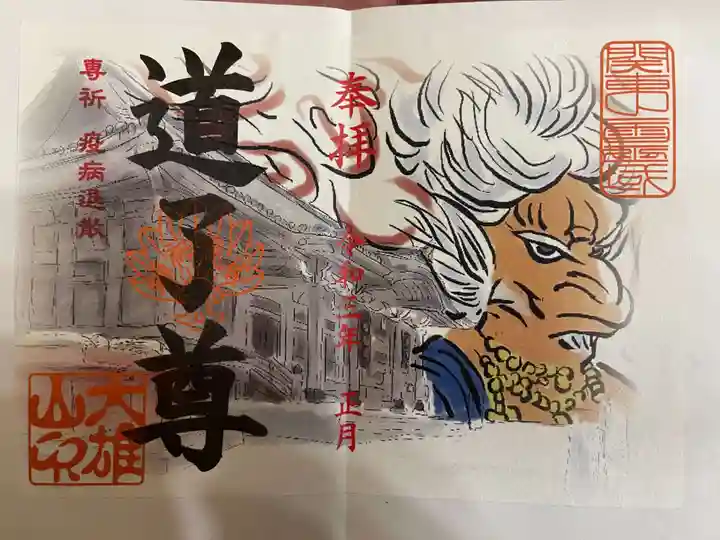 関東霊場
奉拝
令和三年 正月
道了尊
専祈 疫病退散
大雄山印